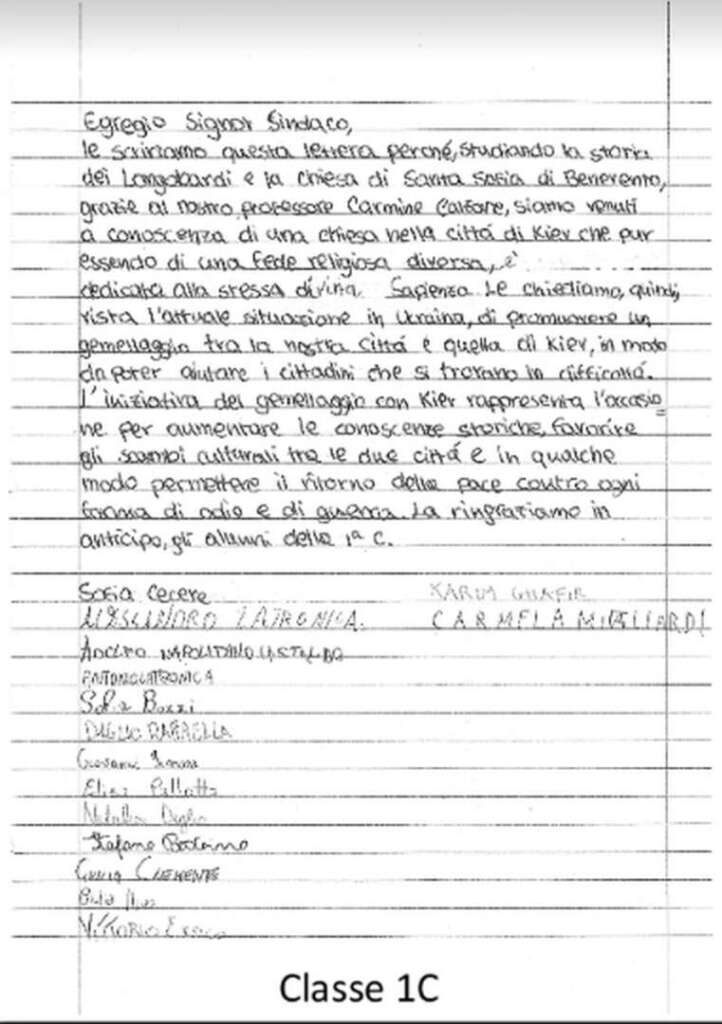 Egregio Signor Sindaco,
le scriviamo questa lettera perché, studiando la storia
dei Longobardi e la chiesa di Santa Sofia di Benevento,
grazie al nostro professore Carmine Carbone, siamo venuti
a conoscenza di una chiesa nella città di Kiev che pur
essendo di una fede religiosa diversa, è
dedicata alla stessa divina Sapienza. Le chiediamo, quindi,
vista l'attuale situazione in Ucraina, di promuovere un
gemellaggio tra la nostra città e quella di Kiev, in modo
da poter aiutare i cittadini che si trovano in difficoltà.
L'iniziativa del gemellaggio con Kiev rappresenta l'occasio=
ne per aumentare le conoscenze storiche, favorire
gli scambi culturali tra le due città e in qualche
modo permettere il ritorno della pace contro ogni
forma di odio e di guerra. La ringraziamo in
anticipo, gli alunni della 1ª C.
Sofia Cecere
KARIM
CARMELA
LATRONICA
ANTONIO LATRONICA
Sofia Bozzi
RAFFAELLA
Giovanni
Elisa
Stefano
CLEMENTE
VITTORIO
Classe 1C